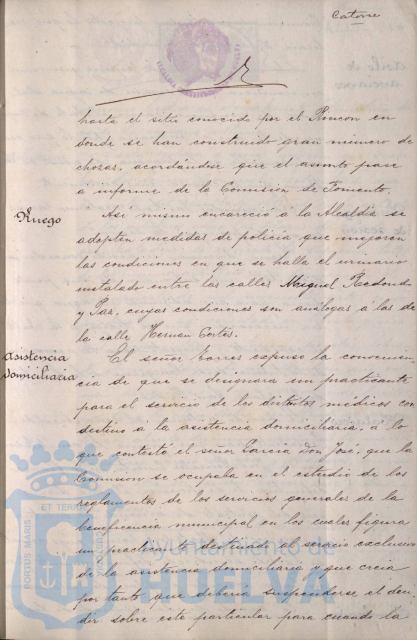 Catorce
hasta el sitio conocido por el Rincon en
donde se han construido gran número de
chozas, acordándose que el asunto pase
á informe de la Comision de Fomento.
Ruego
Así mismo encareció á la Alcaldía se
adopten medidas de policía que mejoren
las condiciones en que se halla el urinario
instalado entre las calles Miguel Redondo
y Paz, cuyas condiciones son análogas á las de
la calle Hernan Cortés.
Asistencia
domiciliaria
El señor Torres expuso la convenien-
cia de que se designara un practicante
para el servicio de los distritos médicos con
destino á la asistencia domiciliaria, á lo
que contestó el señor Garcia Don José, que la
Comision se ocupaba en el estudio de los
reglamentos de los servicios generales de la
beneficencia municipal en los cuales figura
un practicante destinado al servicio exclusivo
de la asistencia domiciliaria y que creia
por tanto que deberia suspenderse el deci-
dir sobre este particular para cuando la
PORTUS MARIS ET TERRAE CUSTODIA
Ayuntamiento de
HUELVA